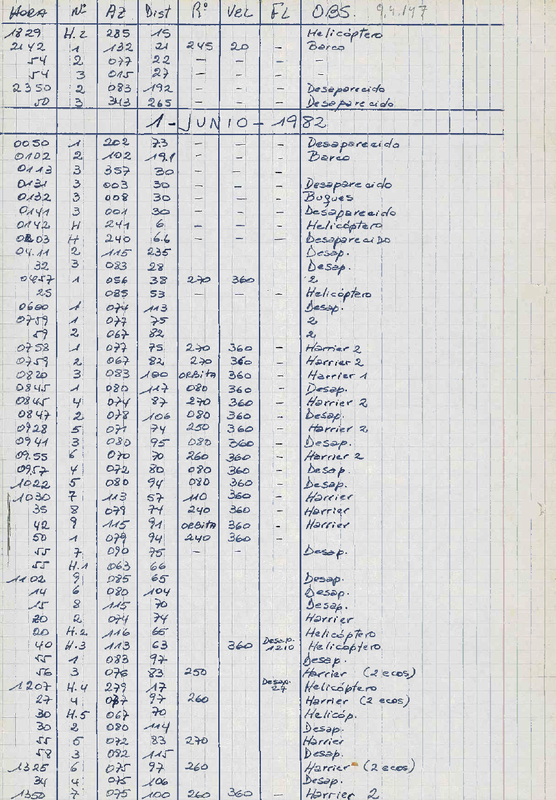 HORA Nº AZ Dist Rº Vel FL OBS. 9.4.147
1829 H.2 285 15 Helicóptero
2142 1 132 21 245 20 - Barco
54 2 077 22 - - - -
54 3 015 27 - - -
2350 2 083 192 - - - Desaparecido
50 3 343 265 - - - Desaparecido
1-JUNIO-1982
0050 1 202 7.3 - - - Desaparecido
0102 2 102 19.1 - - - Barco
0113 3 357 30 - - -
0131 3 003 30 - - - Desaparecido
0132 3 008 30 - - - Buques
0141 3 001 30 - - - Desaparecido
0142 H 241 6 - - - Helicóptero
0203 H 240 6.6 - - - Desaparecido
04.11 2 115 235 Desap.
32 3 083 28 Desap.
0457 1 056 38 270 360 2
25 085 53 - - - Helicóptero
0600 1 074 113 Desap.
0759 1 077 75 2
59 2 067 82 2
0758 1 077 75 270 360 - Harrier 2
0759 2 067 82 270 360 - Harrier 2
0820 3 083 100 ORBITA 360 - Harrier 1
0845 1 080 117 080 360 - Desap.
0845 4 074 87 270 360 - Harrier 2
0847 2 078 106 080 360 - Desap.
0928 5 071 74 250 360 - Harrier 2
0941 3 080 95 080 360 - Desap.
09.55 6 070 70 260 360 - Harrier 2
0957 4 072 80 080 360 - Desap.
1022 5 080 94 080 360 - Desap.
1030 7 113 57 110 360 - Harrier
35 8 079 74 240 360 - Harrier
42 9 115 91 ORBITA 360 - Harrier
50 1 079 94 240 360 -
55 7 090 75 - - Desap.
55 H.1 063 66
1102 9 085 65 Desap.
14 6 080 104 Desap.
15 8 115 70 Desap.
20 2 074 74 Harrier
20 H.2 116 65 Helicóptero
40 H.3 113 63 360 Desap. 1210 Helicóptero
55 1 083 97 Desap.
56 3 076 83 250 Harrier (2 ecos)
1207 H.4 279 17 Desap. 27 Helicóptero
27 4 097 260 Harrier (2 ecos)
30 H.5 067 70 Helicóp.
30 2 080 114 Desap.
55 5 072 83 270 Harrier
58 3 082 115 Desap.
1325 6 075 97 260 Harrier (2 ecos)
34 4 075 106 Desap.
1350 7 075 100 260 360 - Harrier 2